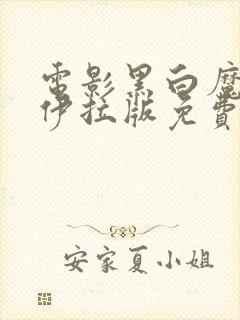 電影黑白魔
伊拉版免費
安家夏小姐